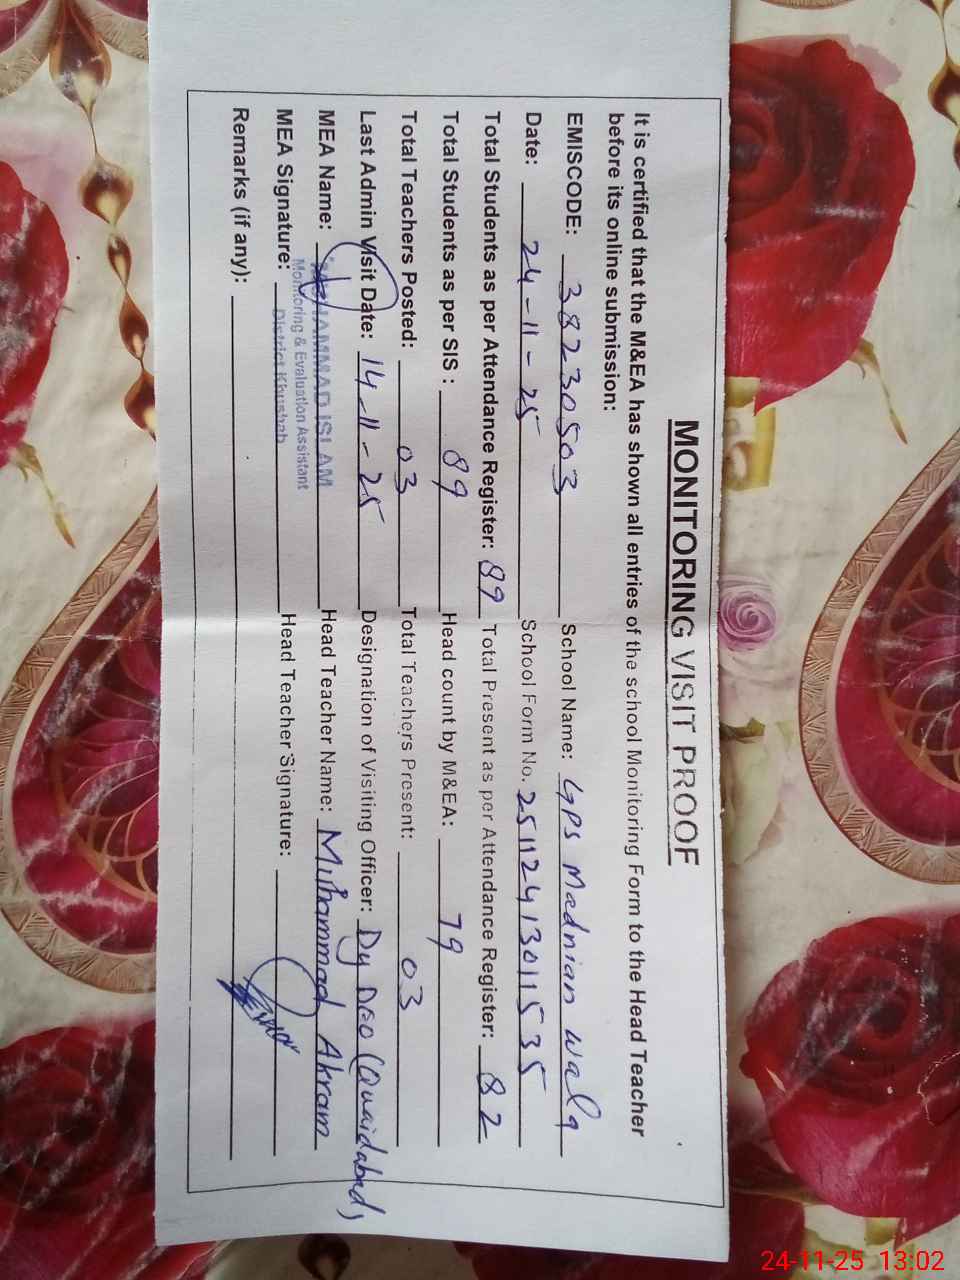 MONITORING VISIT PROOF
It is certified that the M&EA has shown all entries of the school Monitoring Form to the Head Teacher
before its online submission:
EMISCODE: 38230503 School Name: GPS Madnian wala
Date: 24-11-25 School Form No. 251124130111535
Total Students as per Attendance Register: 89 Total Present as per Attendance Register: 82
Total Students as per SIS : 89 Head count by M&EA: 79
Total Teachers Posted: 03 Total Teachers Present: 03
Last Admin Visit Date: 14-11-25 Designation of Visiting Officer: Dy DEO (Quaidabad)
MEA Name: MUHAMMAD ISLAM Head Teacher Name: Muhammad Akram
Monitoring & Evaluation Assistant
MEA Signature: District Khushab Head Teacher Signature:
Remarks (if any):
24-11-25 13:02